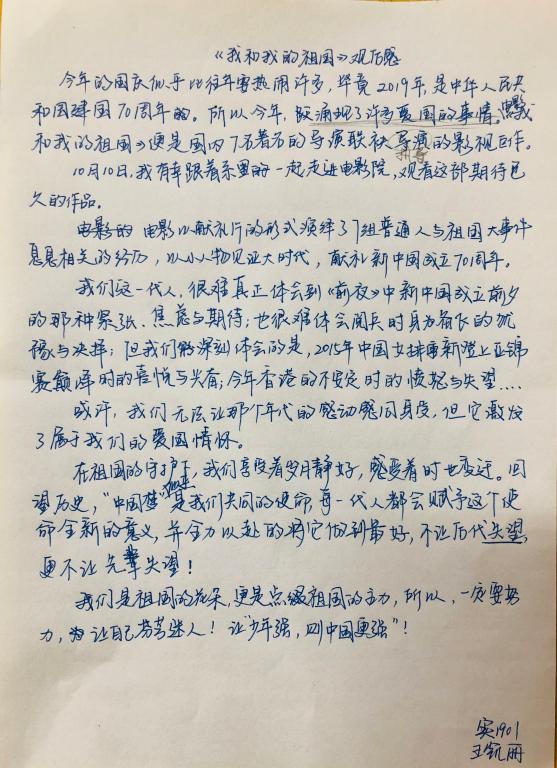 《我和我的祖国》观后感
今年的国庆似乎比往年要热闹许多，毕竟2019年，是中华人民共
和国建国70周年的。所以今年，就涌现了许多爱国的事情。电影《我
和我的祖国》便是国内7名著名的导演联袂导演的影视巨作。
执导
10月10日，我有幸跟着系里的一起走进电影院，观看这部期待已
久的作品。
电影的 电影以献礼片的形式演绎了7组普通人与祖国大事件
息息相关的经历，以小人物见证大时代，献礼新中国成立70周年。
我们这一代人，很难真正体会到《前夜》中新中国成立前夕
的那种紧张、焦虑与期待；也很难体会阅兵时身为首长的犹
豫与决择；但我们能深刻体会的是，2015年中国女排重新登上亚锦
赛巅峰时的喜悦与兴奋；今年香港的不安定时的愤怒与失望....
或许，我们无法让那个年代的感动感同身受，但它激发
了属于我们的爱国情怀。
在祖国的守护下，我们享受着岁月静好，感受着时也变迁。回
望历史，"中国梦"是我们共同的使命，每一代人都会赋予这个使
命全新的意义，并全力以赴的将它做到最好，不让后代失望，
更不让先辈失望！
我们是祖国的花朵，更是点缀祖国的主力，所以，一定要努
力，为让自己芬芳迷人！让"少年强，则中国更强"！
实1901